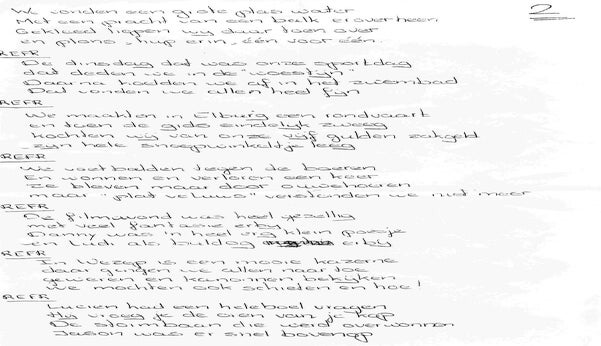 2
We vonden een grote plas water
Met een pracht van een balk er overheen
Gekleed liepen wij daar toen over
en plons, hup erin, één voor één.
REFR
De dinsdag dat was onze sportdag
dat deden we in de "woestijn"
Daarna koelden we af in het zwembad
Dat vonden we allen heel fijn
REFR
We maakten in Elburg een rondvaart
en toen de gids eindelijk zweeg
kochten wij van onze vijf gulden zakgeld
zijn hele snoepwinkeltje leeg
REFR
We voetbalden tegen de boeren
En wonnen en verloren een keer
Ze bleven maar door ouwehoeren
maar "plat veluws" verstonden we niet meer
REFR
De filmavond was heel gezellig
met veel fantasie erbij
Danny was in heel erg klein poesje
en Ludi als buldog erbij
REFR
In Wezep is een mooie kazerne
daar gingen we allen naar toe
geweren en kanonnen bekijken
We mochten ook schieten en hoe!
REFR
Lucien had een heleboel vragen
Hij vroeg je de oren van je kop
De stormbaan die werd overwonnen
Jason was er snel bovenop